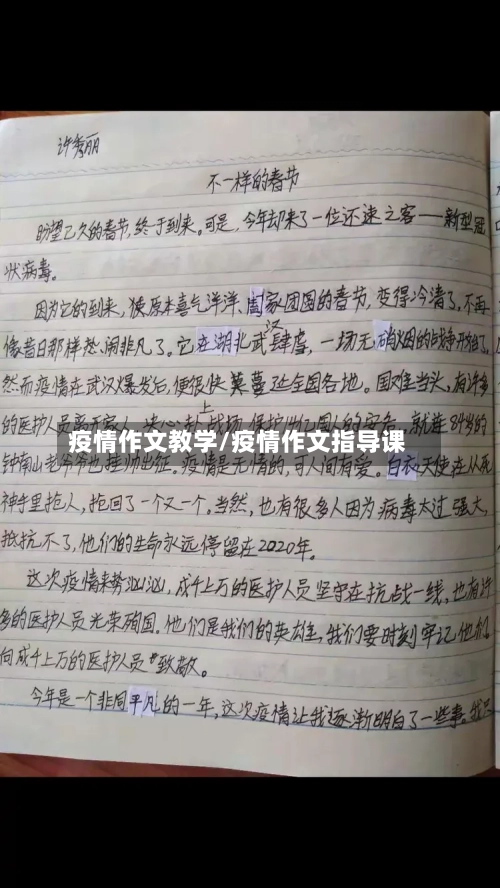 许秀丽
不一样的春节
盼望已久的春节,终于到来。可是,今年却来了一位不速之客——新型冠
状病毒。
因为它的到来,使原本喜气洋洋、阖家团圆的春节,变得冷清了,不再
像昔日那样热闹非凡了。它在湖北武汉肆虐,一场无硝烟的战争开始了。
然而疫情在武汉爆发后,便很快蔓延全国各地。国难当头,有许多
的医护人员离开家人,上战场,保护14亿国人的安危,就连84岁的
疫情作文教学/疫情作文指导课
钟南山老爷爷也挂帅出征。疫情是无情的,可人间有爱。白衣天使在从死
神手里抢人,抢回了一个又一个。当然,也有很多人因为病毒太过强大,
抵抗不了,他们的生命永远停留在2020年。
这次疫情来势汹汹,成千上万的医护人员坚守在抗战一线,也有许
多的医护人员光荣殉国。他们是我们的英雄,我们要时刻牢记他们,
向成千上万的医护人员致敬。
今年是一个非同平凡的一年,这次疫情让我逐渐明白了一些事。我